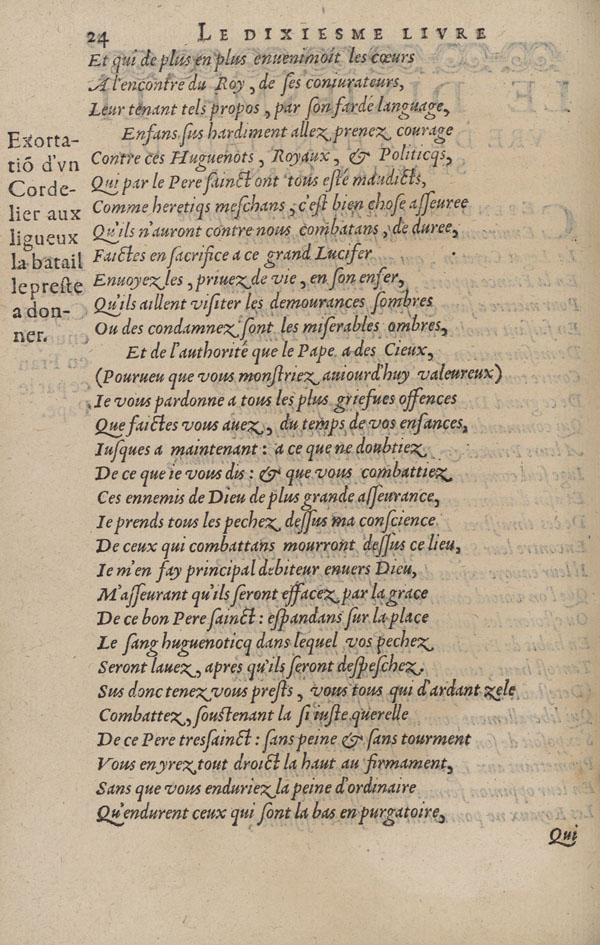 24 LE DIXIESME LIVRE
Et qui de plus en plus enuenimoit les cœurs
A l'encontre du Roy, de ses coniurateurs,
Leur tenant tels propos, par son farde language,
Enfans sus hardiment allez prenez courage
Contre ces Huguenots, Royaux, & Politicqs,
Qui par le Pere sainct ont tous esté maudicts,
Comme heretiqs meschans, c'est bien chose asseuree
Qu'ils n'auront contre nous combatans, de duree,
Faictes en sacrifice a ce grand Lucifer
Enuoyez les, priuez de vie, en son enfer,
Qu'ils aillent visiter les demourances sombres
Ou des condamnez sont les miserables ombres,
Et de l'authorité que le Pape a des Cieux,
(Pourueu que vous monstriez auiourd'huy valeureux)
Ie vous pardonne a tous les plus griefues offences
Que faictes vous auez, du temps de vos enfances,
Iusques a maintenant : a ce que ne doubtiez
De ce que ie vous dis : & que vous combattiez
Ces ennemis de Dieu de plus grande asseurance,
Ie prends tous les pechez dessus ma conscience
De ceux qui combattans mourront dessus ce lieu,
Ie m'en fay principal debiteur enuers Dieu,
M'asseurant qu'ils seront effacez par la grace
De ce bon Pere sainct : espandans sur la place
Le sang huguenoticq dans lequel vos pechez
Seront lauez, apres qu'ils seront despeschez.
Sus donc tenez vous prests, vous tous qui d'ardant zele
Combattez, soustenant la si iuste querelle
De ce Pere tressainct : sans peine & sans tourment
Vous en yrez tout droict la haut au firmament,
Sans que vous enduriez la peine d'ordinaire
Qu'endurent ceux qui sont la bas en purgatoire,
Qui
Exorta-
tiō d'vn
Corde-
lier aux
ligueux
la batail
le preste
a don-
ner.